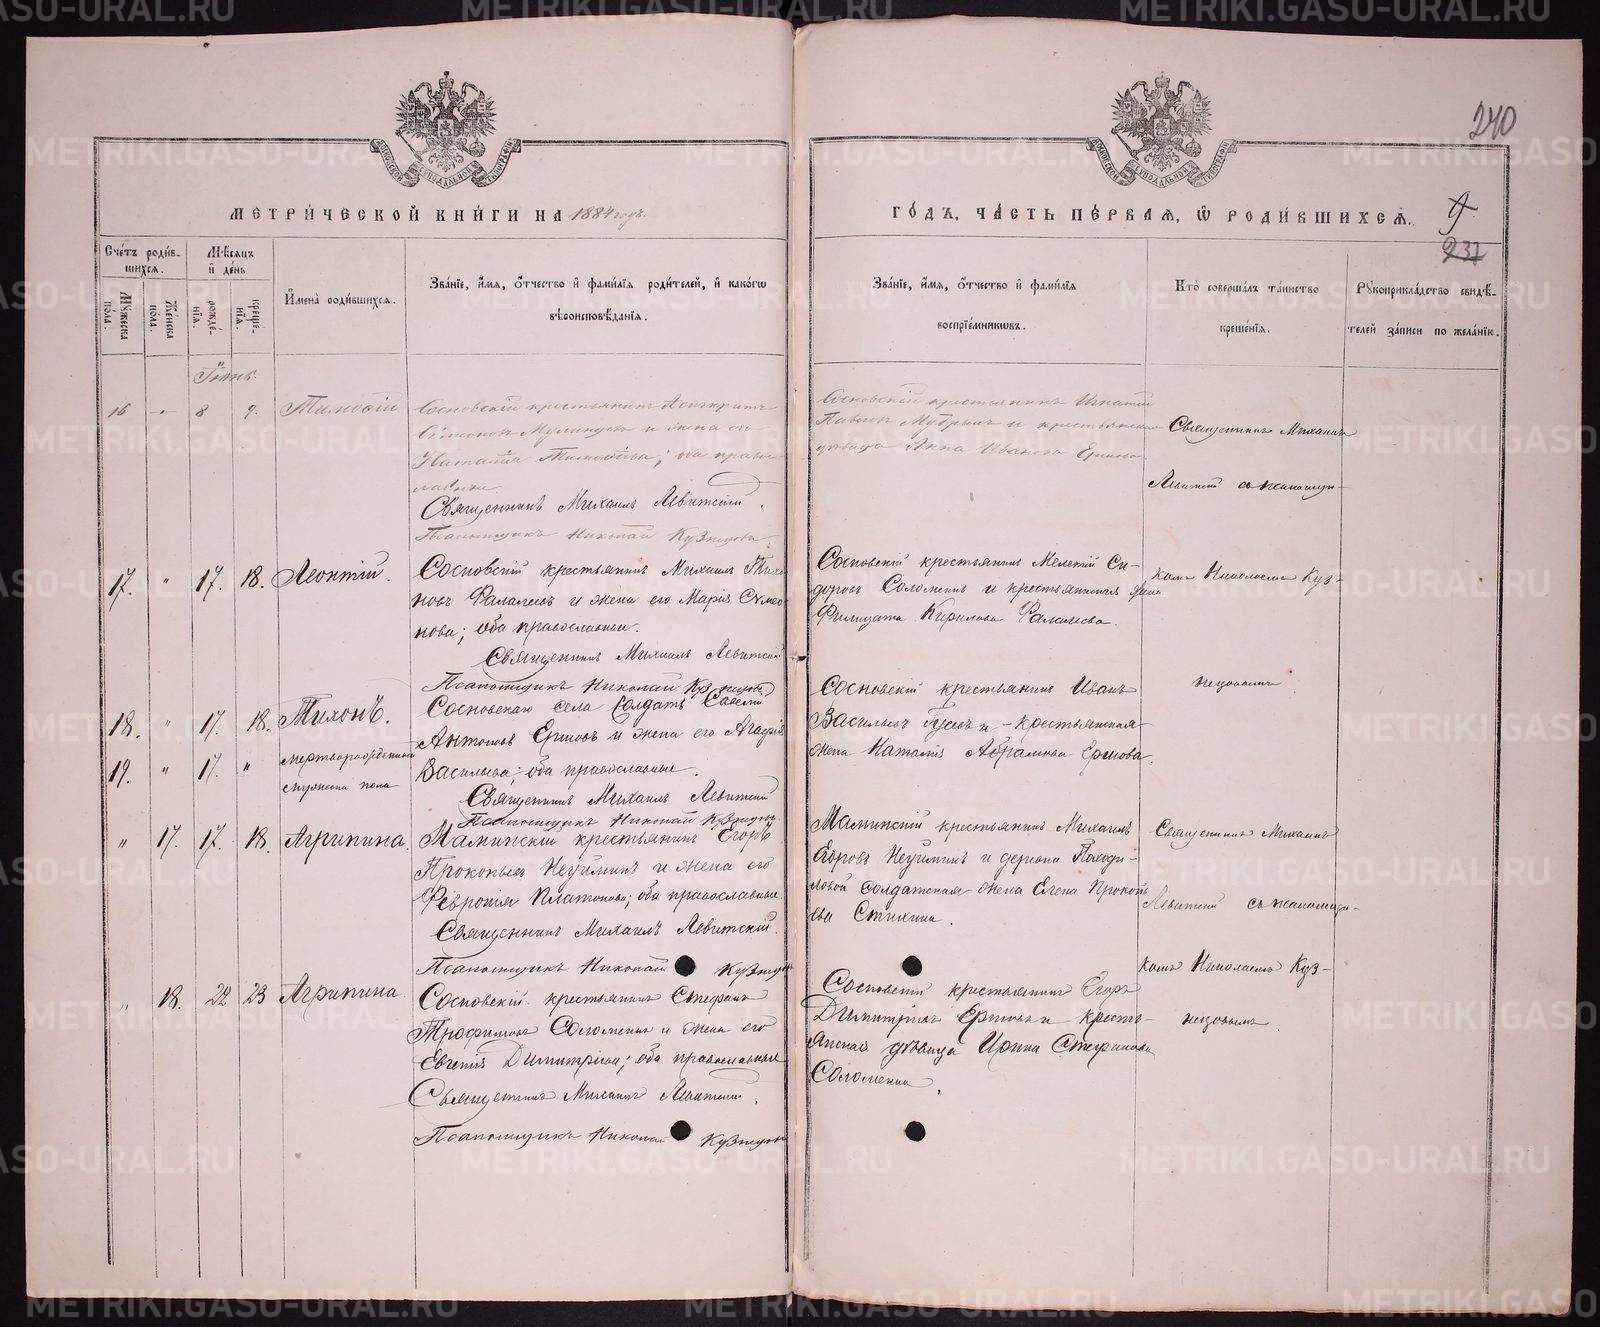 240
МЕТРИЧЕСКОЙ КНИГИ НА 1884 годъ.
ГОДЪ, ЧАСТЬ ПЕРВАЯ, Ѡ РОДИВШИХСЯ.
9
237
Счетъ родившихся.
Мужеска пола.
Женска пола.
Мѣсяцъ и день
рожденія.
крещенія.
Имена родившихся.
Званіе, имя, отчество и фамилія родителей, и какогѡ
вѣроисповѣданія.
Званіе, имя, отчество и фамилія
воспріемниковъ.
Кто совершалъ таинство
крещенія.
Рукоприкладство свидѣ-
телей записи по желанію.
Іюнь.
16 " 8 9. Тимофій
Сосновскій крестьянинъ Асигкритъ
Симеоновъ и жена его
Наталія Тимофіева; оба право-
славные.
Священникъ Михаилъ Левитскій.
Псаломщикъ Николай Кузнецовъ
Сосновскій крестьянинъ Игнатій
Павловъ и крестьянская
дѣвица Анна Иванова Ершова
Священникъ Михаилъ
Левитскій съ псаломщи-
17. " 17. 18. Леонтій.
Сосновскій крестьянинъ Михаилъ Тихо-
новъ Фалалеевъ и жена его Марія Симео-
нова; оба православные.
Священникъ Михаилъ Левитскій
Псаломщикъ Николай Кузнецовъ
Сосновскій крестьянинъ Мелетій Си-
доровъ Соломеинъ и крестьянская жена
Филицата Кирилова Фалалеева.
комъ Николаемъ Куз-
нецовымъ
18. " 17. 18. Тихонъ.
19. " 17. " мертворожденный
мужеска пола
Сосновскаго села Солдатъ Савелій
Антоновъ Ершовъ и жена его Агафія
Васильева; оба православные.
Священникъ Михаилъ Левитскій
Псаломщикъ Николай Кузнецовъ
Сосновскій крестьянинъ Иванъ
Васильевъ Гусевъ и крестьянская
жена Наталія Абрамова Ершова.
" 17. 17. 18. Агрипина.
Маминскій крестьянинъ Егоръ
Прокопьевъ Неуйминъ и жена его
Февронія Платонова; оба православные
Священникъ Михаилъ Левитскій.
Псаломщикъ Николай Кузнецовъ
Маминскій крестьянинъ Михаилъ
Егоровъ Неуйминъ и деревни Походи-
ловой солдатская жена Елена Прокопь-
ева Стихина.
Священникъ Михаилъ
Левитскій съ псаломщи-
комъ Николаемъ Куз-
нецовымъ
" 18. 22 23 Агрипина
Сосновскій крестьянинъ Стефанъ
Трофимовъ Соломеинъ и жена его
Евгенія Димитріева; оба православные
Священникъ Михаилъ Левитскій.
Псаломщикъ Николай Кузнецовъ
Сосновскій крестьянинъ Егоръ
Димитріевъ Ершовъ и кресть-
янская дѣвица Ирина Стефанова
Соломеина.
METRIKI.GASO-URAL.RU